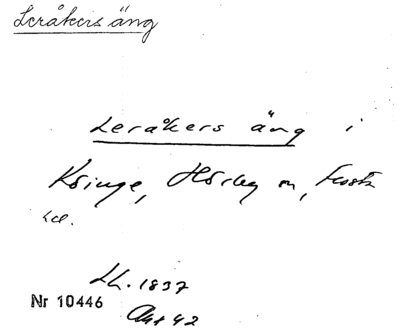 Leråkers äng
Leråkers äng i
Kringe, Hörby sn, Frosta
hd.
Lh. 1837
Nr 10446
Akt 42